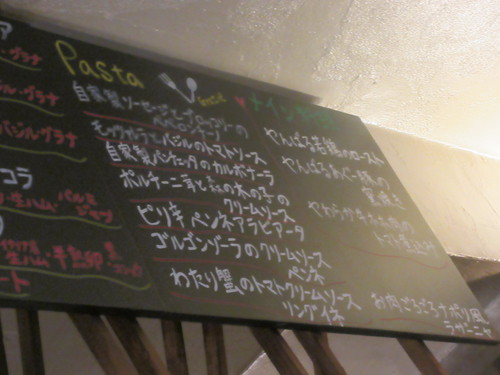 Pasta
自家製ソーセージとブロッコリーの
ペペロンチーノ
モッツァレラとバジルのトマトソース
自家製パンチェッタのカルボナーラ
ポルチーニ茸と紅の木の子の
クリームソース
ピリ辛ペンネアラビアータ
ゴルゴンゾーラのクリームソース
ペンネ
わたり蟹のトマトクリームソース
リングイネ
メイン料理
やんばる若鶏のロースト
やんばるあぐー豚の
窯焼き
やわらか
トマト煮込み
お肉ごろごろナポリ風
ラザニエ
グラナ
グラナ
バジル・グラナ
コラ
生ハム・パルミ
ジャーノ
生ハム・半熟卵
ート